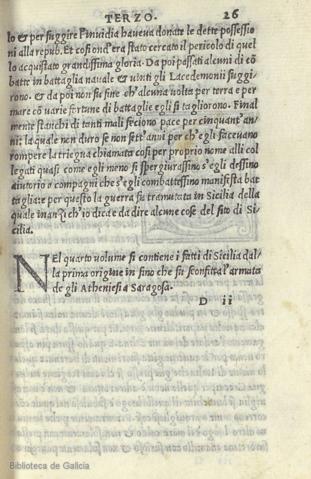 TERZO. 26
lo & per fuggire l'inuidia haueua donate le dette possessio
ni alla repub. Et cosi ond'era stato cercato il pericolo di quel
lo acquistato grandissima gloria. Da poi passati alcuni dì cō
batte in battaglia nauale & uinti gli Lacedemonii fuggi,
rono. & da poi non fu fine ch'alcuna uolta per terra e per
mare cō uarie fortune di battaglie egli si tagliorono. Final
mente stanchi di tanti mali feciono pace per cinquant'an,
ni: laquale non duro se non sett'anni per ch'egli faceuano
rompere la triegua chiamata cosi per proprio nome alli col
legati quasi come egli meno si spergiurassino s'egli dessino
aiutorio a compagni che s'egli combattessino manifesta bat
tagliate per questo la guerra fu tramutata in Sicilia della
quale inanzi ch'io dica e da dire alcune cose del sito di Si,
cilia.
NEl quarto uolume si contiene i fatti di Sicilia dal,
la prima origine in fino che fu sconfitta l'armata
de gli Atheniesi a Saragosa.
D ii
Biblioteca de Galicia